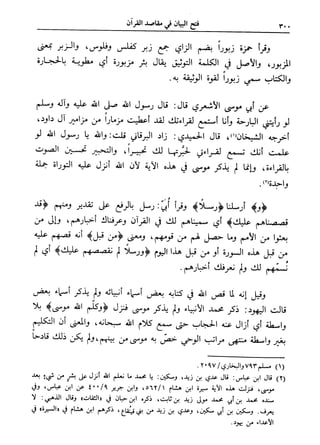 ٣٠٠ فتح البيان في مقاصد القرآن
وقرأ حمزة زبوراً بضم الزاي جمع زبر كفلس وفلوس، والزبر بمعنى
المزبور، والأصل في الكلمة التوثيق يقال بئر مزبورة أي مطوية بالحجارة
والكتاب سمي زبوراً لقوة الوثيقة به.
عن أبي موسى الأشعري قال: قال رسول الله صلى الله عليه وآله وسلم
لو رأيتني البارحة وأنا أستمع لقراءتك لقد أعطيت مزماراً من مزامير آل داود،
أخرجه الشيخان(١)، قال الحميدي: زاد البرقاني قلت: والله يا رسول الله لو
علمت أنك تسمع لقراءتي لحبرتها لك تحبيراً، والتحبير تحسين الصوت
بالقراءة، وإنما لم يذكر موسى في هذه الآية لأن الله أنزل عليه التوراة جملة
واحدة(٢).
﴿و﴾ أرسلنا ﴿رسلاً﴾ وقرأ أُبيّ: رسل بالرفع على تقدير ومنهم ﴿قد
قصصناهم عليك﴾ أي سميناهم لك في القرآن وعرفناك أخبارهم، وإلى من
بعثوا من الأمم وما حصل لهم من قومهم، ومعنى ﴿من قبل﴾ أنه قصهم عليه
من قبل هذه السورة أو من قبل هذا اليوم ﴿ورسلاً لم نقصصهم عليك﴾ أي لم
نُسمّهم لك ولم نعرفك أخبارهم.
وقيل إنه لما قص الله في كتابه بعض أسماء أنبيائه ولم يذكر أسماء بعض
قالت اليهود: ذكر محمد الأنبياء ولم يذكر موسى فنزل ﴿وكلّم الله موسى﴾ بلا
واسطة أي أزال عنه الحجاب حتى سمع كلام الله سبحانه، والمعنى أن التكليم
بغير واسطة منتهى مراتب الوحي خصّ به موسى من بينهم، ولم يكن ذلك قادحاً
(١) مسلم ٧٩٣ والبخاري/٢٠٩٧.
(٢) قال ابن عباس: قال عدي بن زيد، وسكين: يا محمد ما نعلم الله أنزل على بشر من شيء بعد
موسى، فنزلت هذه الآية سيرة ابن هشام ٥٦٢/١، وابن جرير ٤٠٠/٩ عن ابن عباس، وفي
سنده محمد بن أبي محمد مولى زيد بن ثابت، ذكره ابن حبان في «الثقات» وقال الذهبي: لا
يعرف. وسكين بن أبي سكين، وعدي بن زيد من بني قينُقاع، ذكرهم ابن هشام في «السيرة» في
الأعداء من يهود.